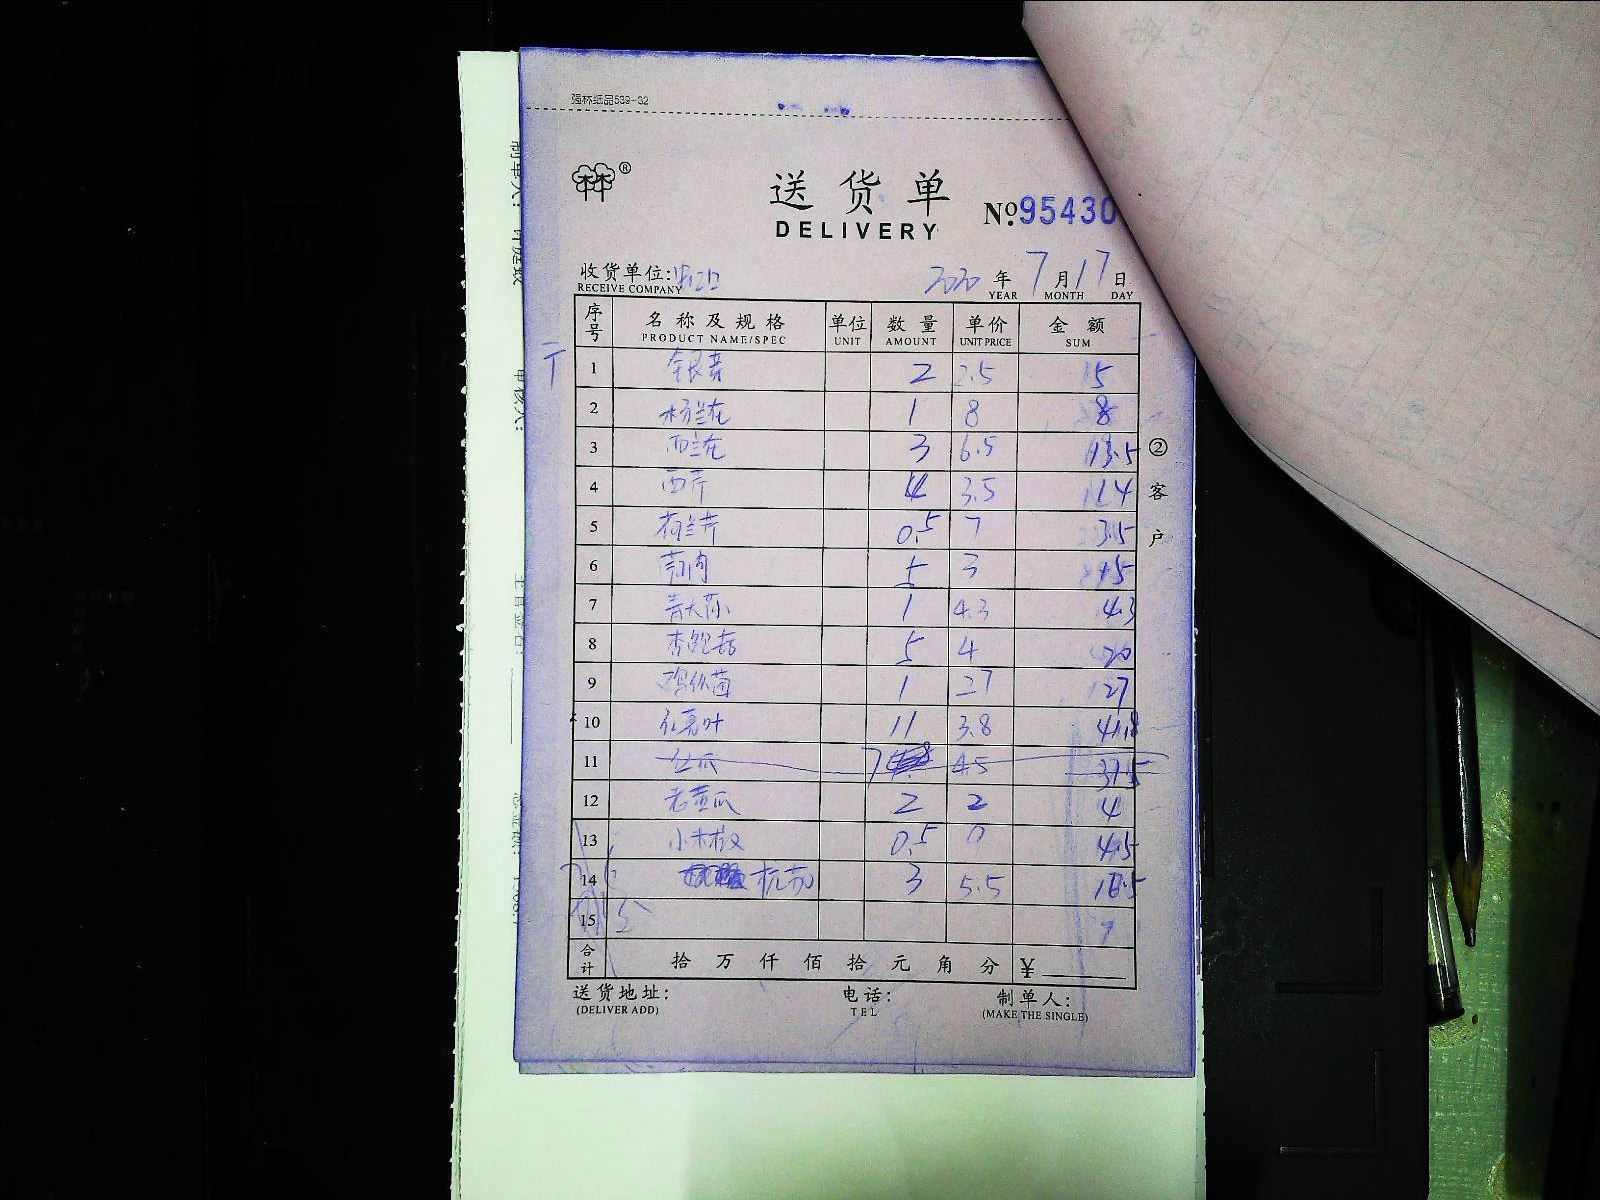 强林纸品539-32
®
送货单
DELIVERY
No.95430
收货单位:
RECEIVE COMPANY
2020 年 7 月 17 日
YEAR MONTH DAY
序号 名称及规格 单位 数量 单价 金额
PRODUCT NAME/SPEC UNIT AMOUNT UNIT PRICE SUM
1 2 7.5 15
2 杨兰花 1 8 8
3 西兰花 3 6.5 19.5
4 西芹 4 3.5 14
5 0.5 7 3.5
6 5 3 15
7 青大 1 4.3 4.3
8 杏鲍菇 5 4 20
9 1 27 27
10 叶 11 3.8 41.8
11 丝瓜 7 4.5 31.5
12 老黄瓜 2 2 4
13 小米椒 0.5 4.5
14 杭茄 3 5.5 16.5
15
合计 拾 万 仟 佰 拾 元 角 分 ¥
送货地址: 电话: 制单人:
(DELIVER ADD) TEL (MAKE THE SINGLE)
②客户